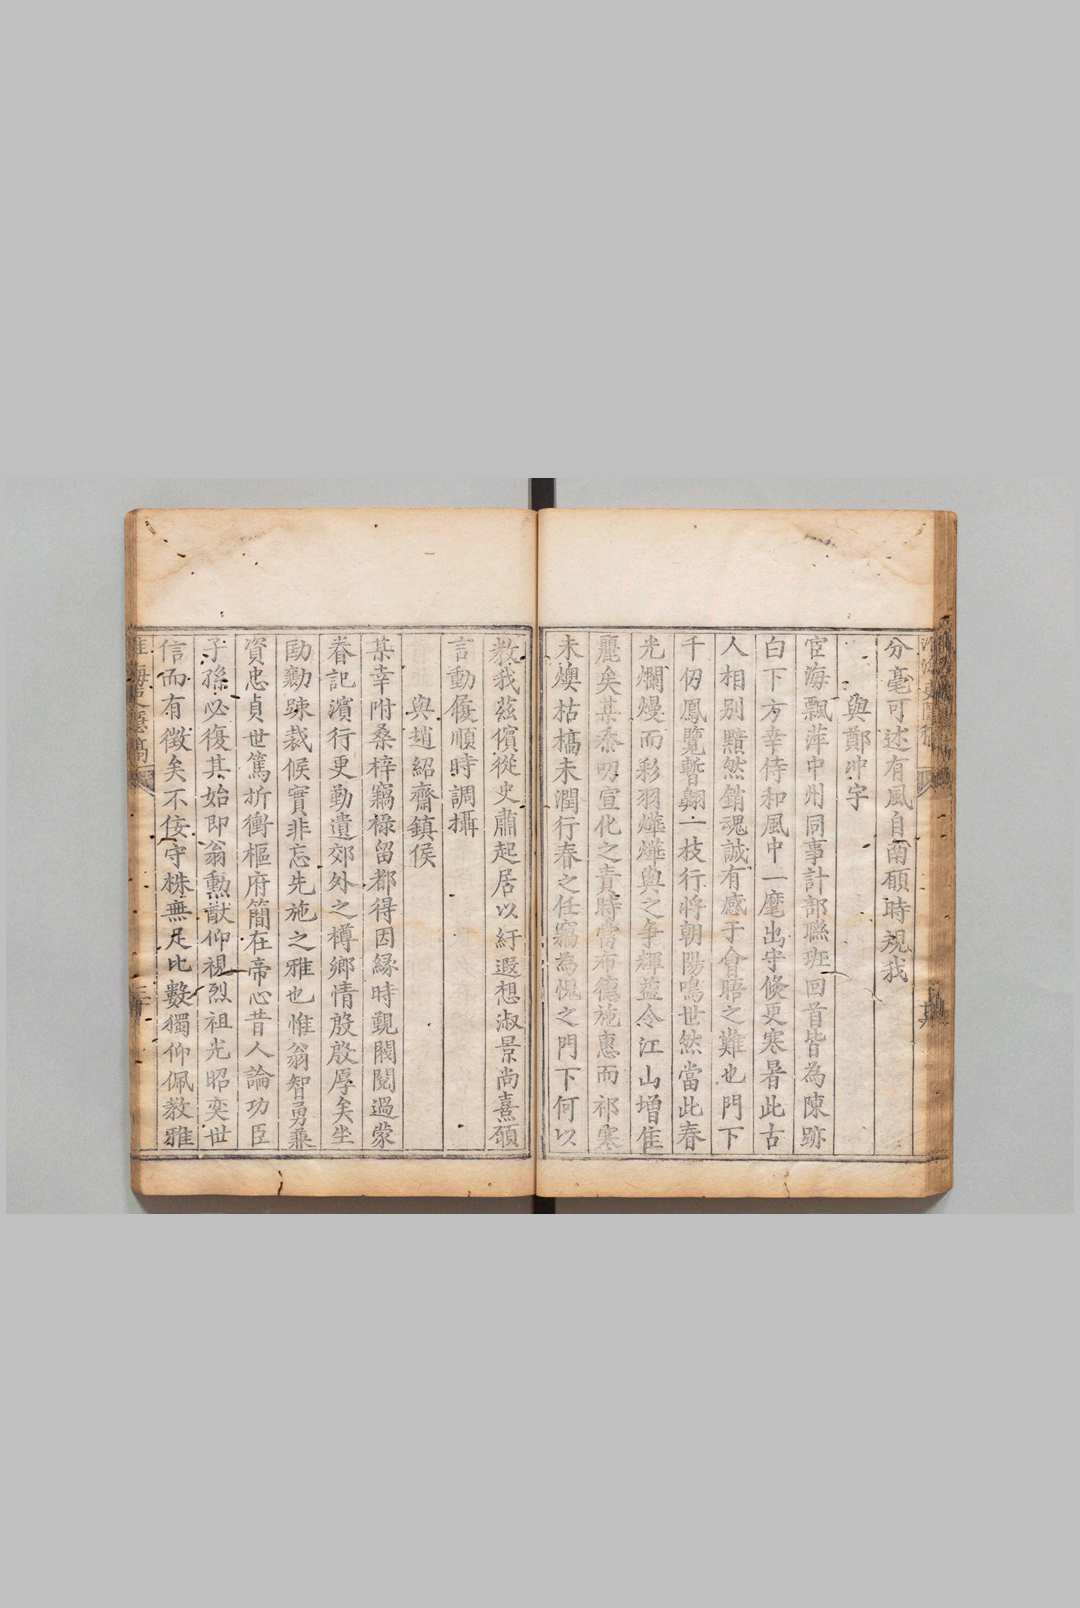 分毫可述有風自南頋時規我
與鄭冲宇
宦海飄萍中州同事計部聮班回首皆為陳跡
白下方幸侍和風中一麾出守倐更寒暑此古
人相别黯然銷魂誠有感于會晤之難也門下
千仭鳳覽暫翺一枝行將朝陽鳴世然當此春
光爛熳而彩羽燁燁與之争輝益令江山增隹
麗矣某忝叨宣化之責時當布德施惠而祁寒
未燠枯槁未潤行春之任竊為愧之門下何以
教我茲儐從史肅起居以紓遐想淑景尚熹頋
言動履順時調攝
與趙紹齋鎮侯
某幸附桑梓竊祿留都得因緣時覿閥閱過蒙
眷記濱行更勤遺郊外之樽鄉情殷殷厚矣坐
劻勷踈裁候實非忘先施之雅也惟翁智勇兼
資忠貞世篤折衝樞府簡在帝心昔人論功臣
子孫必復其始即翁勲猷仰視烈祖光昭奕世
信而有徴矣不佞守株無足比數獨仰佩教雅